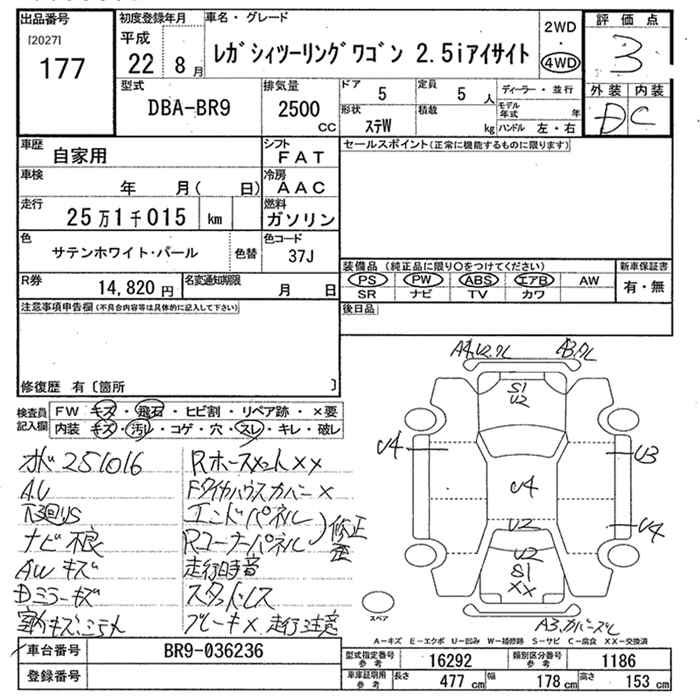 出品番号 初度登録年月 車名・グレード 評価点
[2027] 177 平成 22 8月 レガシィツーリングワゴン 2.5iアイサイト 2WD・4WD 3
型式 排気量 ドア 5 定員 5人 ディーラー・並行 外装 内装
DBA-BR9 2500cc 形状 ステW 積載 kg モデル年式 年 D C
ハンドル 左・右
車歴 自家用 シフト FAT セールスポイント(正常に機能するものに限ります)
車検 年 月( 日) 冷房 AAC
走行 25万1千015 km 燃料 ガソリン
色 サテンホワイト・パール 色替 色コード 37J
装備品(純正品に限り○をつけてください) 新車保証書
R券 14,820円 名変通知期限 月 日 PS PW ABS エアB AW 有・無
SR ナビ TV カワ
注意事項申告欄(不具合内容等は具体的に記入して下さい) 後日品
修復歴 有〔箇所 〕
検査員記入欄 FW キズ・飛石・ヒビ割・リペア跡・×要
内装 キズ・汚れ・コゲ・穴・スレ・キレ・破レ
A4.U2.クレ A3.クレ
S1
U2
U4 U3
U4
U2 U4
U2
S1
XX
A3.カバーズレ
スペア
オド251016
AU
下廻りS
ナビ不良
AWキズ
Dミラーキズ
RホースメントXX
FタイヤハウスカバーX
エンドパネル
Rコーナーパネル 修正歪
走行時音
スタッドレス
ブレーキX 走行注意
A−キズ E−エクボ U−凹み W−補修跡 S−サビ C−腐食 XX−交換済
車台番号 BR9-036236 型式指定番号 参考 16292 類別区分番号 参考 1186
登録番号 車庫証明用 参考 長さ 477cm 幅 178cm 高さ 153cm